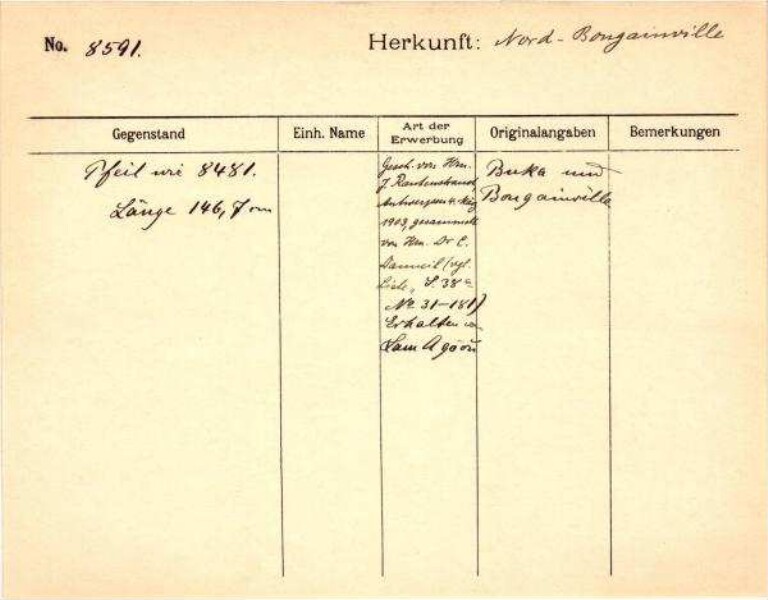 No. 8591.
Herkunft: Nord-Bougainville
Gegenstand
Einh. Name
Art der Erwerbung
Originalangaben
Bemerkungen
Pfeil wie 8481.
Länge 146,7 cm
Gesch. von Hrn.
J. Rautenstrauch,
Antwerpen 4. März
1903, gesammelt
von Hrn. Dr C.
Danneil (vgl.
Liste, S. 38
No 31-181)
Erhalten von
Buka und
Bougainville